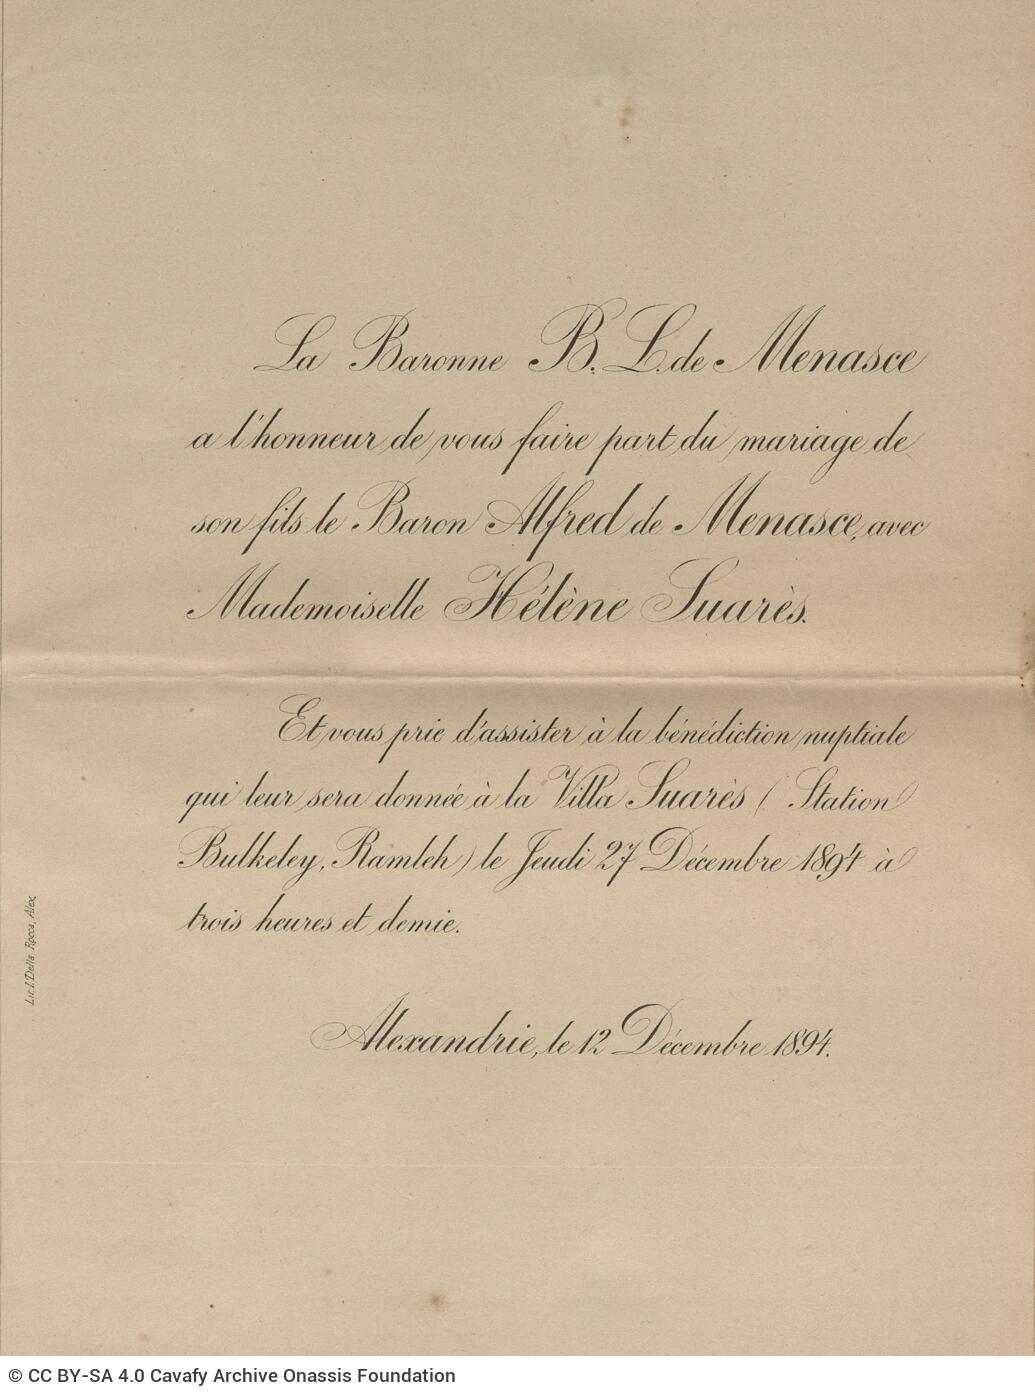 La Baronne B. L. de Menasce
a l'honneur de vous faire part du mariage de
son fils le Baron Alfred de Menasce, avec
Mademoiselle Hélène Suarès.
Et vous prie d'assister à la bénédiction nuptiale
qui leur sera donnée à la Villa Suarès ( Station
Bulkeley, Ramleh ) le Jeudi 27 Décembre 1894 à
trois heures et demie.
Alexandrie, le 12 Décembre 1894.
Lit. I. Della Rocca, Alex.
© CC BY-SA 4.0 Cavafy Archive Onassis Foundation